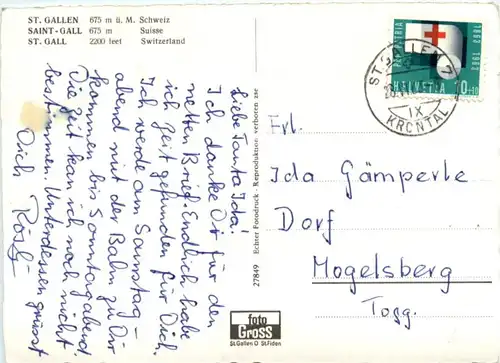 ST. GALLEN 675 m ü. M. Schweiz
SAINT-GALL 675 m Suisse
ST. GALL 2200 feet Switzerland
Liebe Tanta Ida!
Ich danke Dir für den
netten Brief. Endlich habe
ich Zeit gefunden für Dich.
Ich werde am Samstag-
abend mit der Bahn zu Dir
kommen bis Sonntagabend.
Die Zeit kan ich noch nicht
bestimmen. Unterdessen grüsst
Dich Rösli
27849 Echter Fotodruck - Reproduktion verboten
foto
Gross
St.Gallen O St.Fiden
PRO PATRIA
1863 1963
HELVETIA 10+10
ST. GALLEN
IX
KRONTAL
Frl.
Ida Gämperle
Dorf
Mogelsberg
Togg.